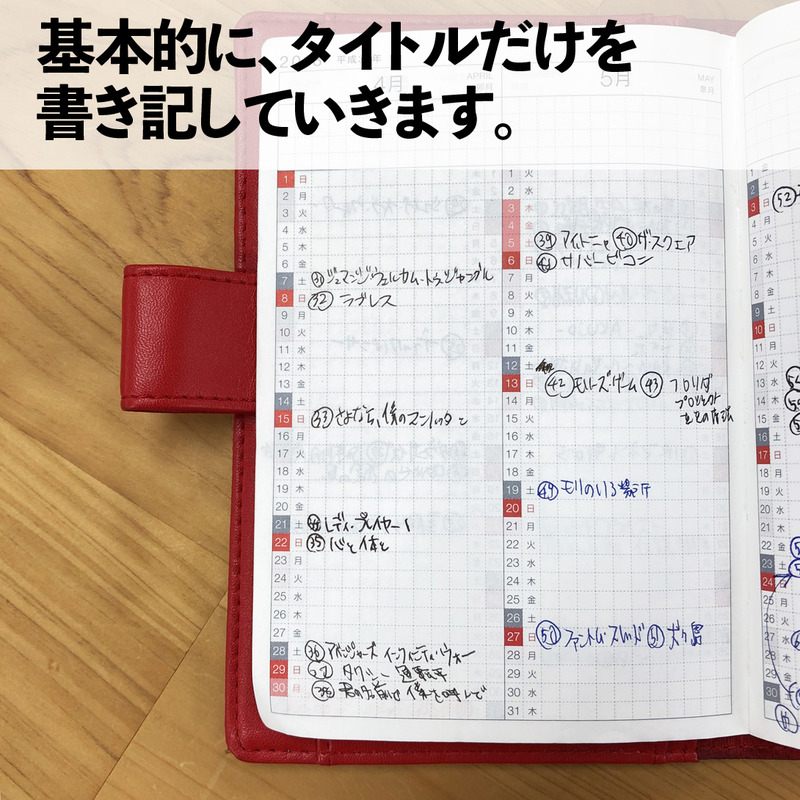 基本的に、タイトルだけを
書き記していきます。
平成
4月
APRIL
5月
MAY
皐月
1 日
2 月
3 火
4 水
5 木
6 金
7 土 ㉛ ジュマンジ ウェルカム・トゥ・ジャングル
8 日 ㉜ ラブレス
9 月
10 火
11 水
12 木
13 金
14 土
15 日 ㉝ さよなら、僕のマンハッタン
16 月
17 火
18 水
19 木
20 金
21 土 ㉞ レディ・プレイヤー1
22 日 ㉟ 心と体と
23 月
24 火
25 水
26 木
27 金
28 土 ㊱ アベンジャーズ インフィニティ・ウォー
29 日 タクシー 運転手
30 月 ㊳ 君の名前で僕を呼んで
1 火
2 水
3 木
4 金
5 土 ㊴ アイトーニャ ㊵ ザ・スクエア
6 日 ㊶ サバービコン
7 月
8 火
9 水
10 木
11 金
12 土
13 日 ㊷ モリーズ・ゲーム ㊸ フロリダ
プロジェクト
14 月
15 火
16 水
17 木
18 金
19 土 ㊾ モリのいる場所
20 日
21 月
22 火
23 水
24 木
25 金
26 土
27 日 ㊿ ファントム・スレッド 51 犬ヶ島
28 月
29 火
30 水
31 木